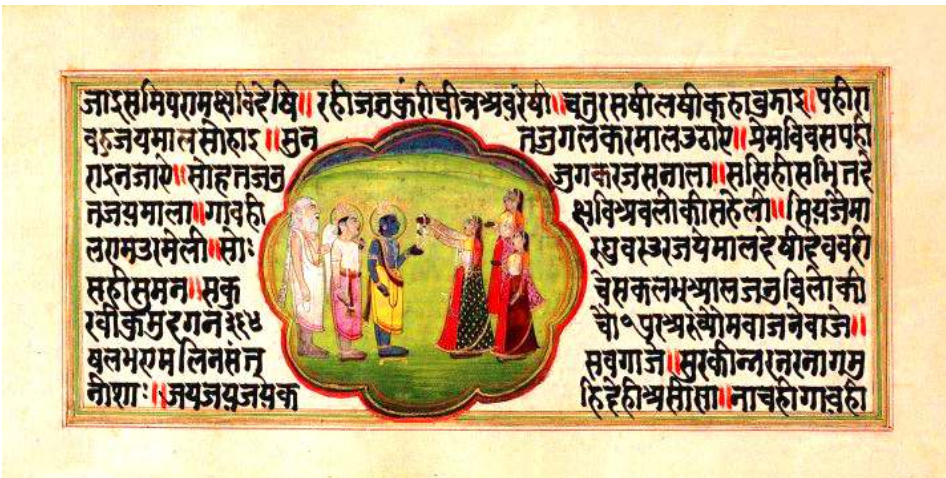 जाइसमिपरामक्षबिदेषि॥रहीजनुकुंरीचीत्रअवरेषी॥चतुरसषीलषीकहावुझाइ॥पहीरा
वहुजयमालसोहाइ॥सुन तजुगलकरमालउठाऐ॥प्रेमविवसपही
राइनजाऐ॥सोहतजनु जुगकरजसनाला॥ससिहीसभितदे
तजयमाला॥गावही क्षविअवलोकीसहेली॥सियजैमा
लरामउरमेली॥सोः रघुवरउरजयेमालदेषीदेववरी
सहीसुमन॥सकु चेसकलभुआलजनुविलोकी
रवीकुमुदगन२६४ चौ॰पुरअरुव्योमवाजनेवाजे॥
षलभएमलिनसंत सवगाजे॥सुरकीन्नरनरनागमु
नीशाः॥जयजयजयक हिदेहीअसीसा॥नाचहीगावही